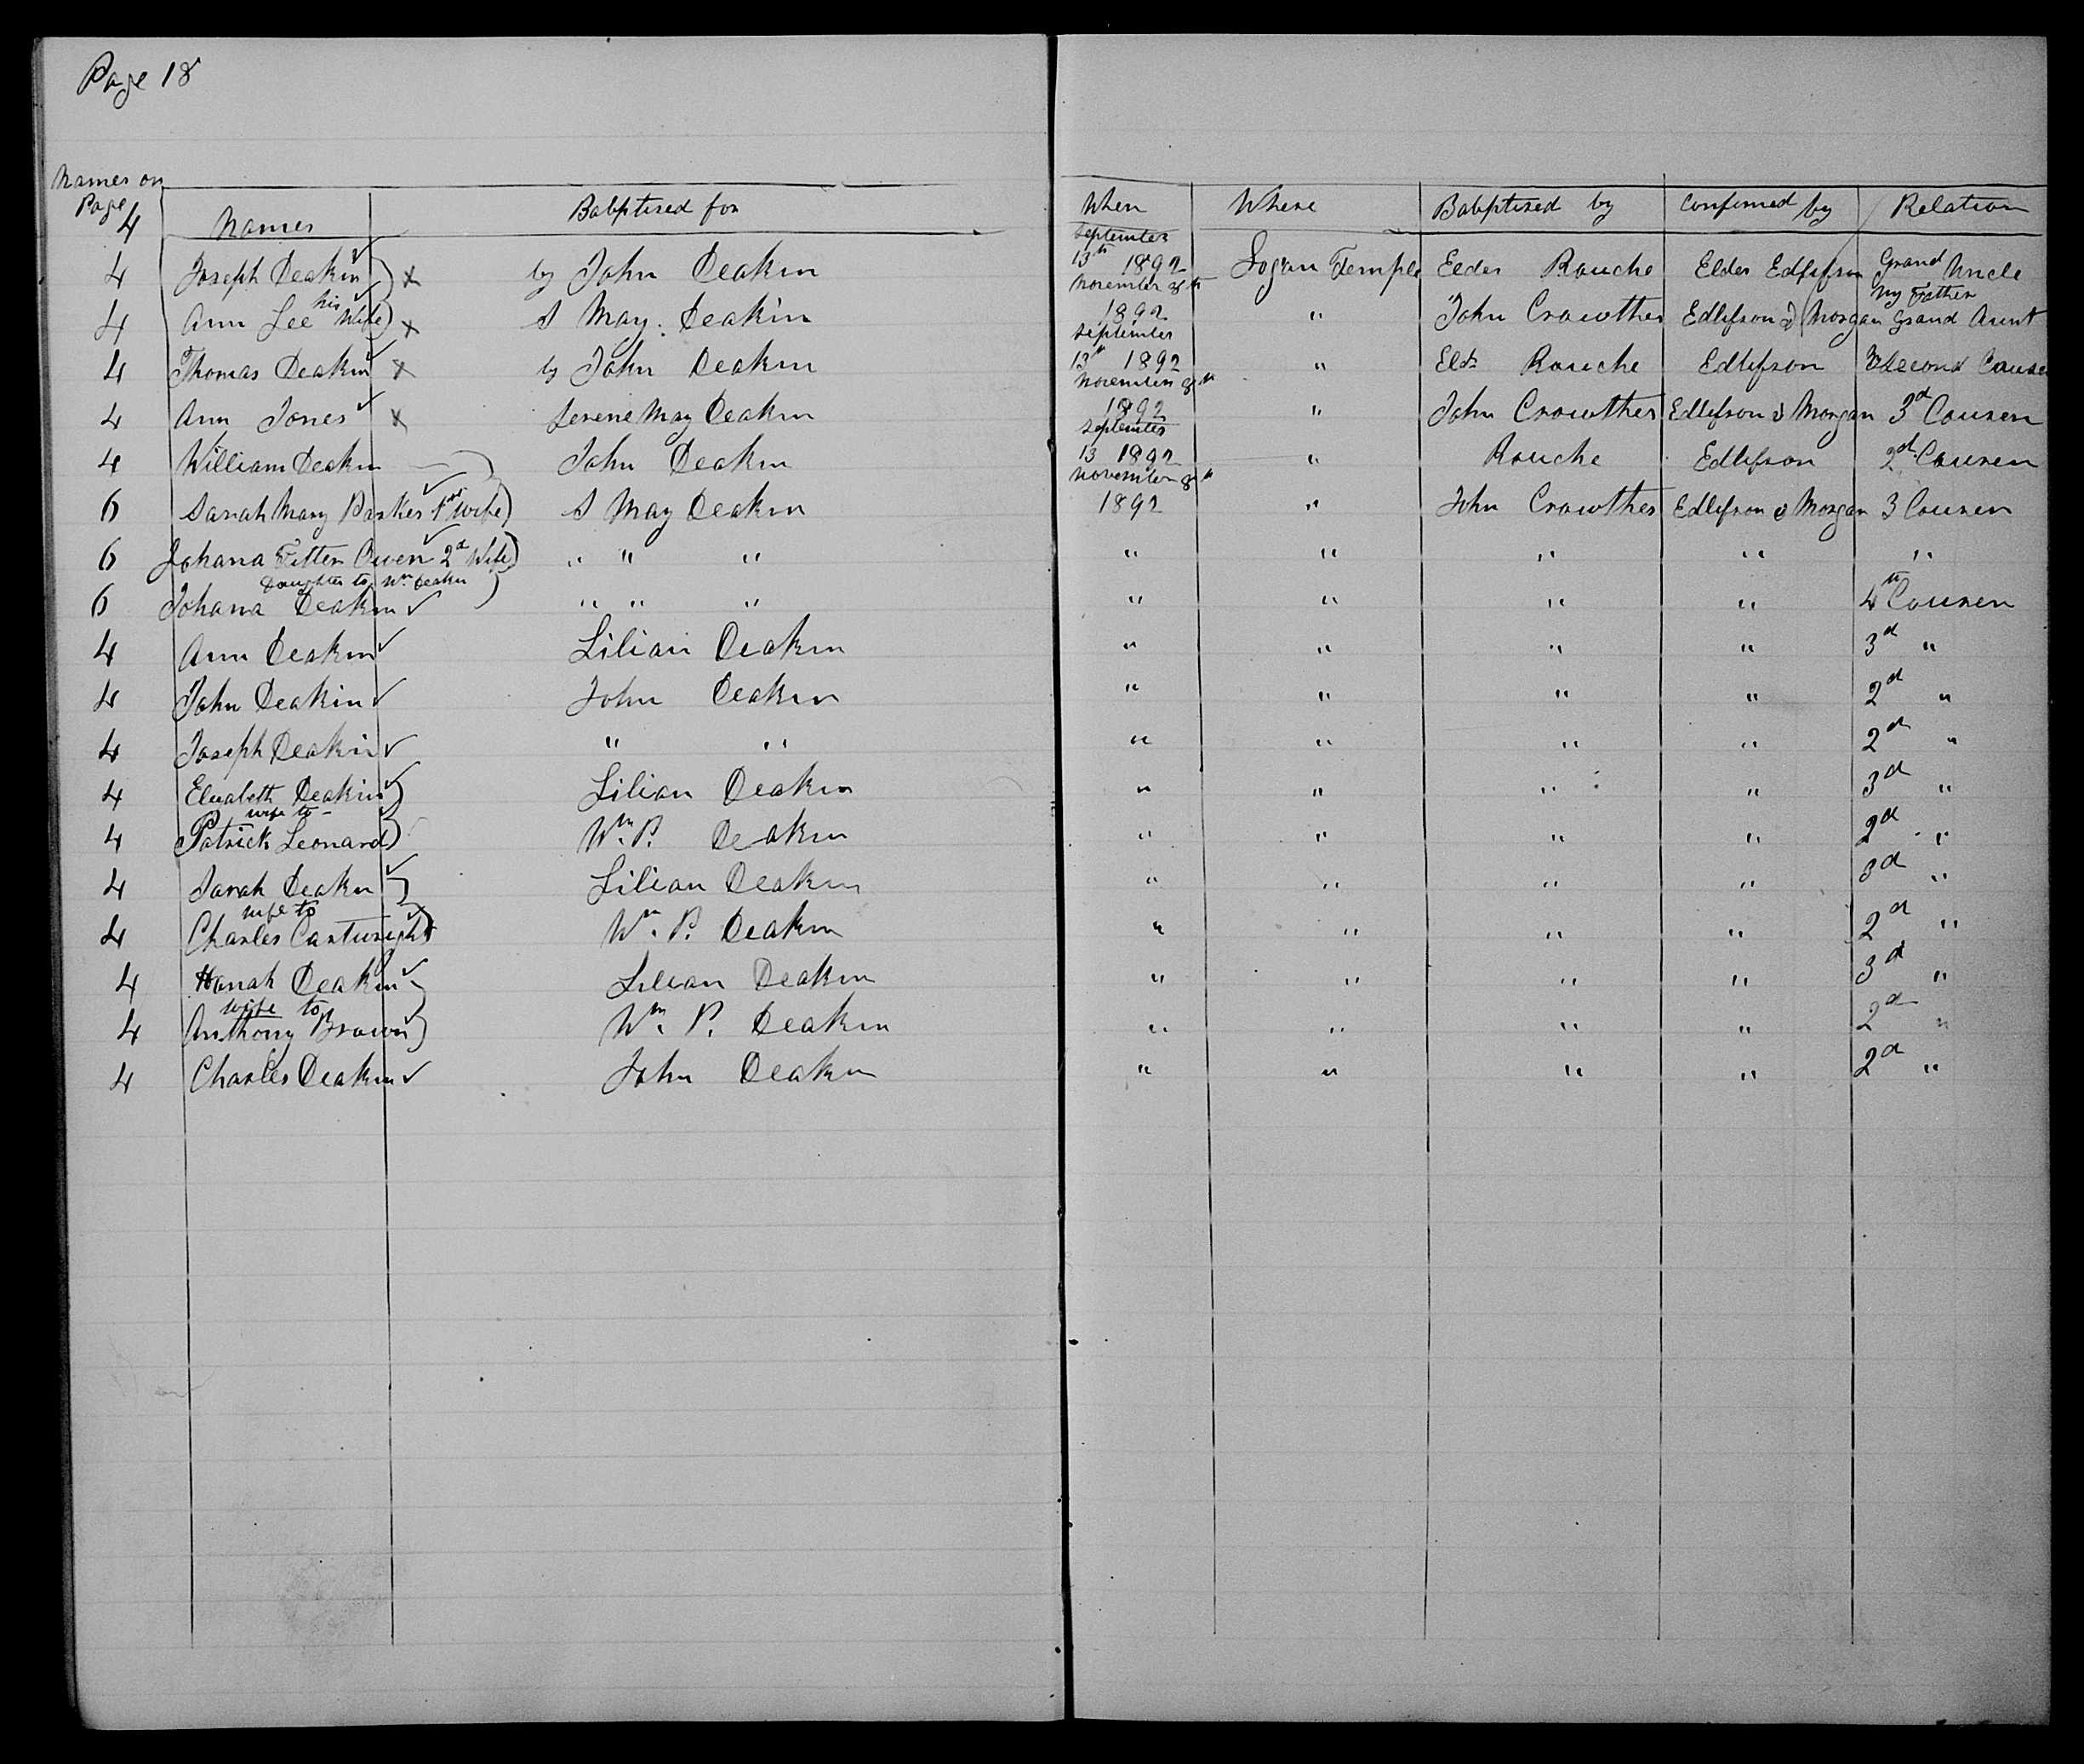 Page 18
Names on
Page 4 Names Babptised for When Where Babptised by Confirmed by Relation
4 Joseph Deakin ✓ ) x by John Deakin September 13th 1892 Logan Temple Elder Rouche Elder Edlefson Grand Uncle
4 Ann Lee his Wife ✓ ) x S May. Deakin November 8th 1892 " John Crowther Edlefson & Morgan My Father Grand Aunt
4 Thomas Deakin ✓ x by John Deakin September 13th 1892 " Eld. Rouche Edlefson Second
4 Ann Jones ✓ x Serene May Deakin November 8th 1892 " John Crowther Edlefson & Morgan 3d Cousen
4 William Deakin John Deakin September 13 1892 " Rouche Edlefson 2d Cousen
6 Sarah Mary Parker 1st Wife ✓ ) S May Deakin November 8th 1892 " John Crowther Edlefson & Morgan 3 Cousen
6 Johana Fitten Owen 2d Wife ✓ ) " " " " " " " "
Daughter to Wm Deakin
6 Johana Deakin ✓ ) " " " " " " " 4th Cousen
4 Ann Deakin ✓ Lilian Deakin " " " " 3d "
4 John Deakin ✓ John Deakin " " " " 2d "
4 Joseph Deakin ✓ " " " " " " 2d "
4 Elizabeth Deakin ✓ ) Lilian Deakin " " " " 3d "
wife to
4 Patrick Leonard ) Wm. P. Deakin " " " " 2d "
4 Sarah Deakin ✓ ) Lilian Deakin " " " " 3d "
wife to
4 Charles Cartwright Wm. P. Deakin " " " " 2d "
4 Hanah Deakin ✓ ) Lilian Deakin " " " " 3d "
wife to
4 Anthony Brown ✓ ) Wm. P. Deakin " " " " 2d "
4 Charles Deakin ✓ John Deakin " " " " 2d "